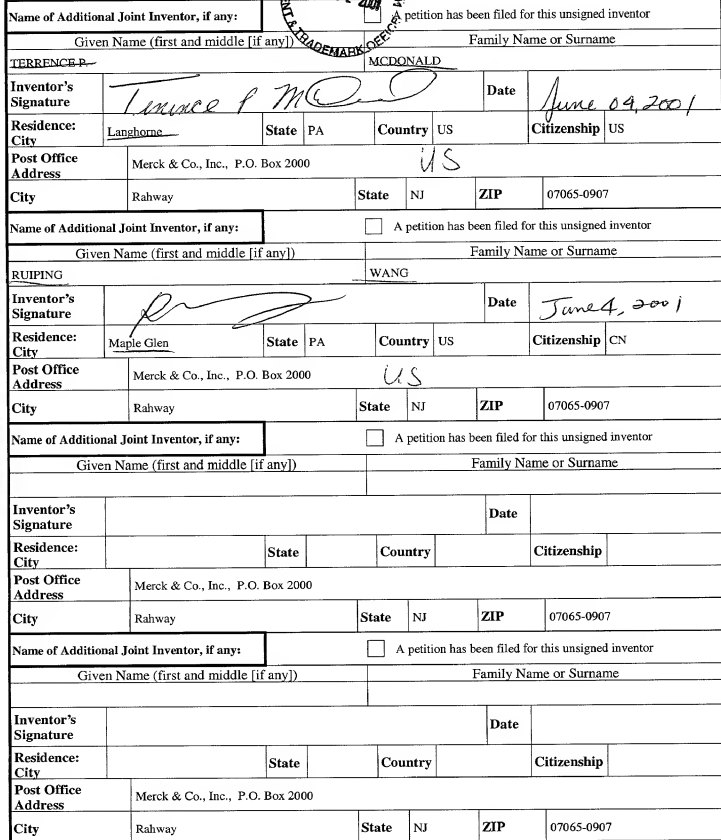 Name of Additional Joint Inventor, if any: petition has been filed for this unsigned inventor
& TRADEMARK OFFICE
Given Name (first and middle [if any]) Family Name or Surname
TERRENCE P. MCDONALD
Inventor's Signature Terrence P McD Date June 04, 2001
Residence: City Langhorne State PA Country US Citizenship US
Post Office Address Merck & Co., Inc., P.O. Box 2000 US
City Rahway State NJ ZIP 07065-0907
Name of Additional Joint Inventor, if any: A petition has been filed for this unsigned inventor
Given Name (first and middle [if any]) Family Name or Surname
RUIPING WANG
Inventor's Signature Date June 4, 2001
Residence: City Maple Glen State PA Country US Citizenship CN
Post Office Address Merck & Co., Inc., P.O. Box 2000 US
City Rahway State NJ ZIP 07065-0907
Name of Additional Joint Inventor, if any: A petition has been filed for this unsigned inventor
Given Name (first and middle [if any]) Family Name or Surname
Inventor's Signature Date
Residence: City State Country Citizenship
Post Office Address Merck & Co., Inc., P.O. Box 2000
City Rahway State NJ ZIP 07065-0907
Name of Additional Joint Inventor, if any: A petition has been filed for this unsigned inventor
Given Name (first and middle [if any]) Family Name or Surname
Inventor's Signature Date
Residence: City State Country Citizenship
Post Office Address Merck & Co., Inc., P.O. Box 2000
City Rahway State NJ ZIP 07065-0907